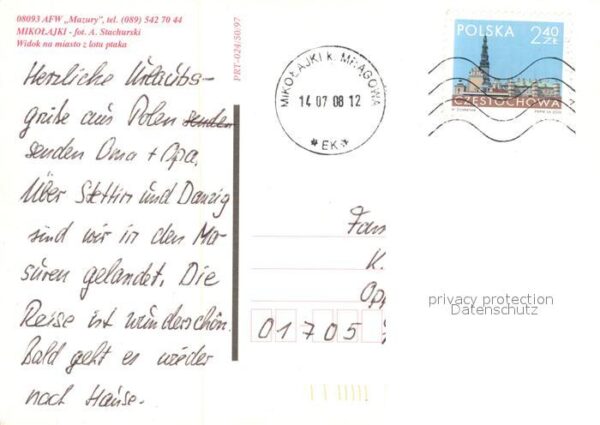 08093 AFW „Mazury”, tel. (089) 542 70 44
MIKOŁAJKI - fot. A. Stachurski
Widok na miasto z lotu ptaka
PRT-024/30/97
Herzliche Urlaubs-
grüße aus Polen senden
senden Oma + Opa.
Über Stettin und Danzig
sind wir in den Ma-
suren gelandet. Die
Reise ist wunderschön.
Bald geht es wieder
nach Hause.
MIKOŁAJKI k. MRĄGOWA
14 07 08 12
* EK *
POLSKA 2,40 ZŁ
CZĘSTOCHOWA
Fam
K.
Opp
01705
privacy protection
Datenschutz